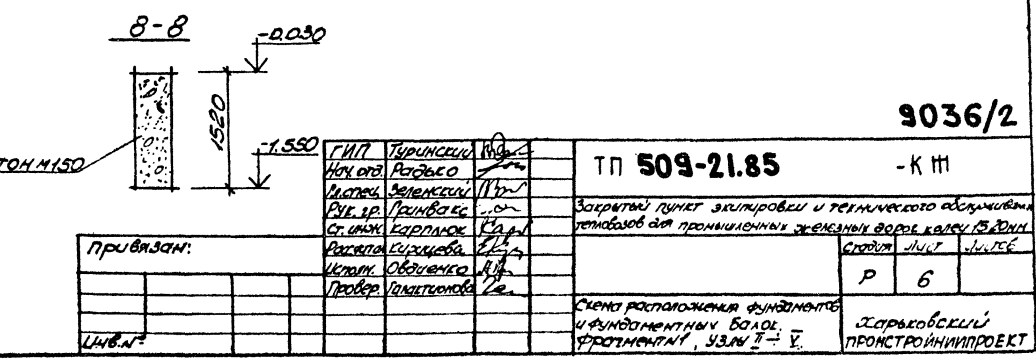 8-8
-0.030
1520
-1.550
ТОН М150
9036/2
ГИП Туринский
Нач. отд. Радько
Гл. спец. Зеленский
Рук. гр. Гринвакс
Ст. инж. Карплюк
Исполн. Овдиенко
Провер. Галактионова
ТП 509-21.85 -КЖ
Закрытый пункт экипировки и технического обслуживан
тепловозов для промышленных железных дорог колеи 1520мм
Стадия Лист Листов
Р 6
Схема расположения фундаментов
и фундаментных балок,
фрагмент 1, узлы II÷V.
Харьковский
ПРОМСТРОЙНИИПРОЕКТ
Привязан:
Инв.№